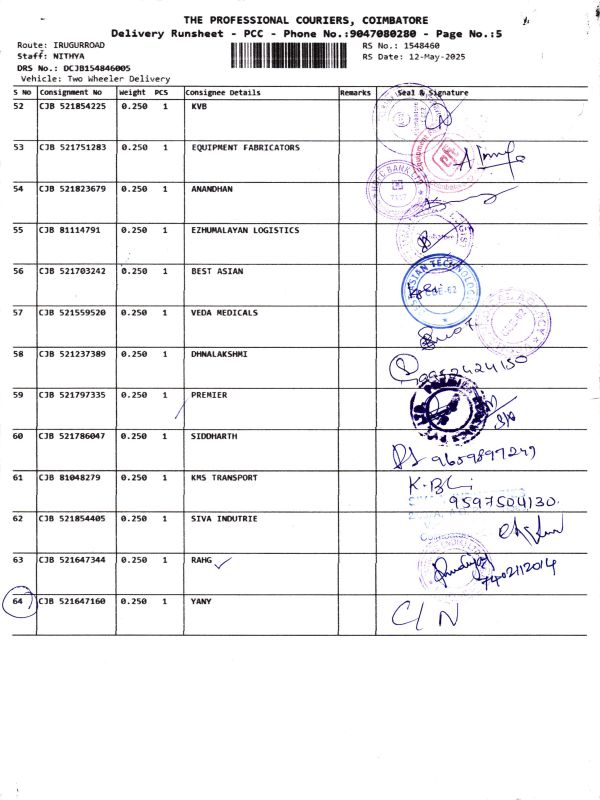 THE PROFESSIONAL COURIERS, COIMBATORE
Delivery Runsheet - PCC - Phone No.:9047080280 - Page No.:5
Route: IRUGURROAD
Staff: NITHYA
RS No.: 1548460
RS Date: 12-May-2025
DRS No.: DCJB154846005
Vehicle: Two Wheeler Delivery
S No Consignment No Weight PCS Consignee Details Remarks Seal & Signature
52 CJB 521854225 0.250 1 KVB
53 CJB 521751283 0.250 1 EQUIPMENT FABRICATORS
54 CJB 521823679 0.250 1 ANANDHAN
55 CJB 81114791 0.250 1 EZHUMALAYAN LOGISTICS
56 CJB 521703242 0.250 1 BEST ASIAN
57 CJB 521559520 0.250 1 VEDA MEDICALS
58 CJB 521237389 0.250 1 DHNALAKSHMI
9952424150
59 CJB 521797335 0.250 1 PREMIER
60 CJB 521786047 0.250 1 SIDDHARTH
9659897249
61 CJB 81048279 0.250 1 KMS TRANSPORT
9597504130
62 CJB 521854405 0.250 1 SIVA INDUTRIE
63 CJB 521647344 0.250 1 RAHG
7402112014
64 CJB 521647160 0.250 1 YANY
C/N